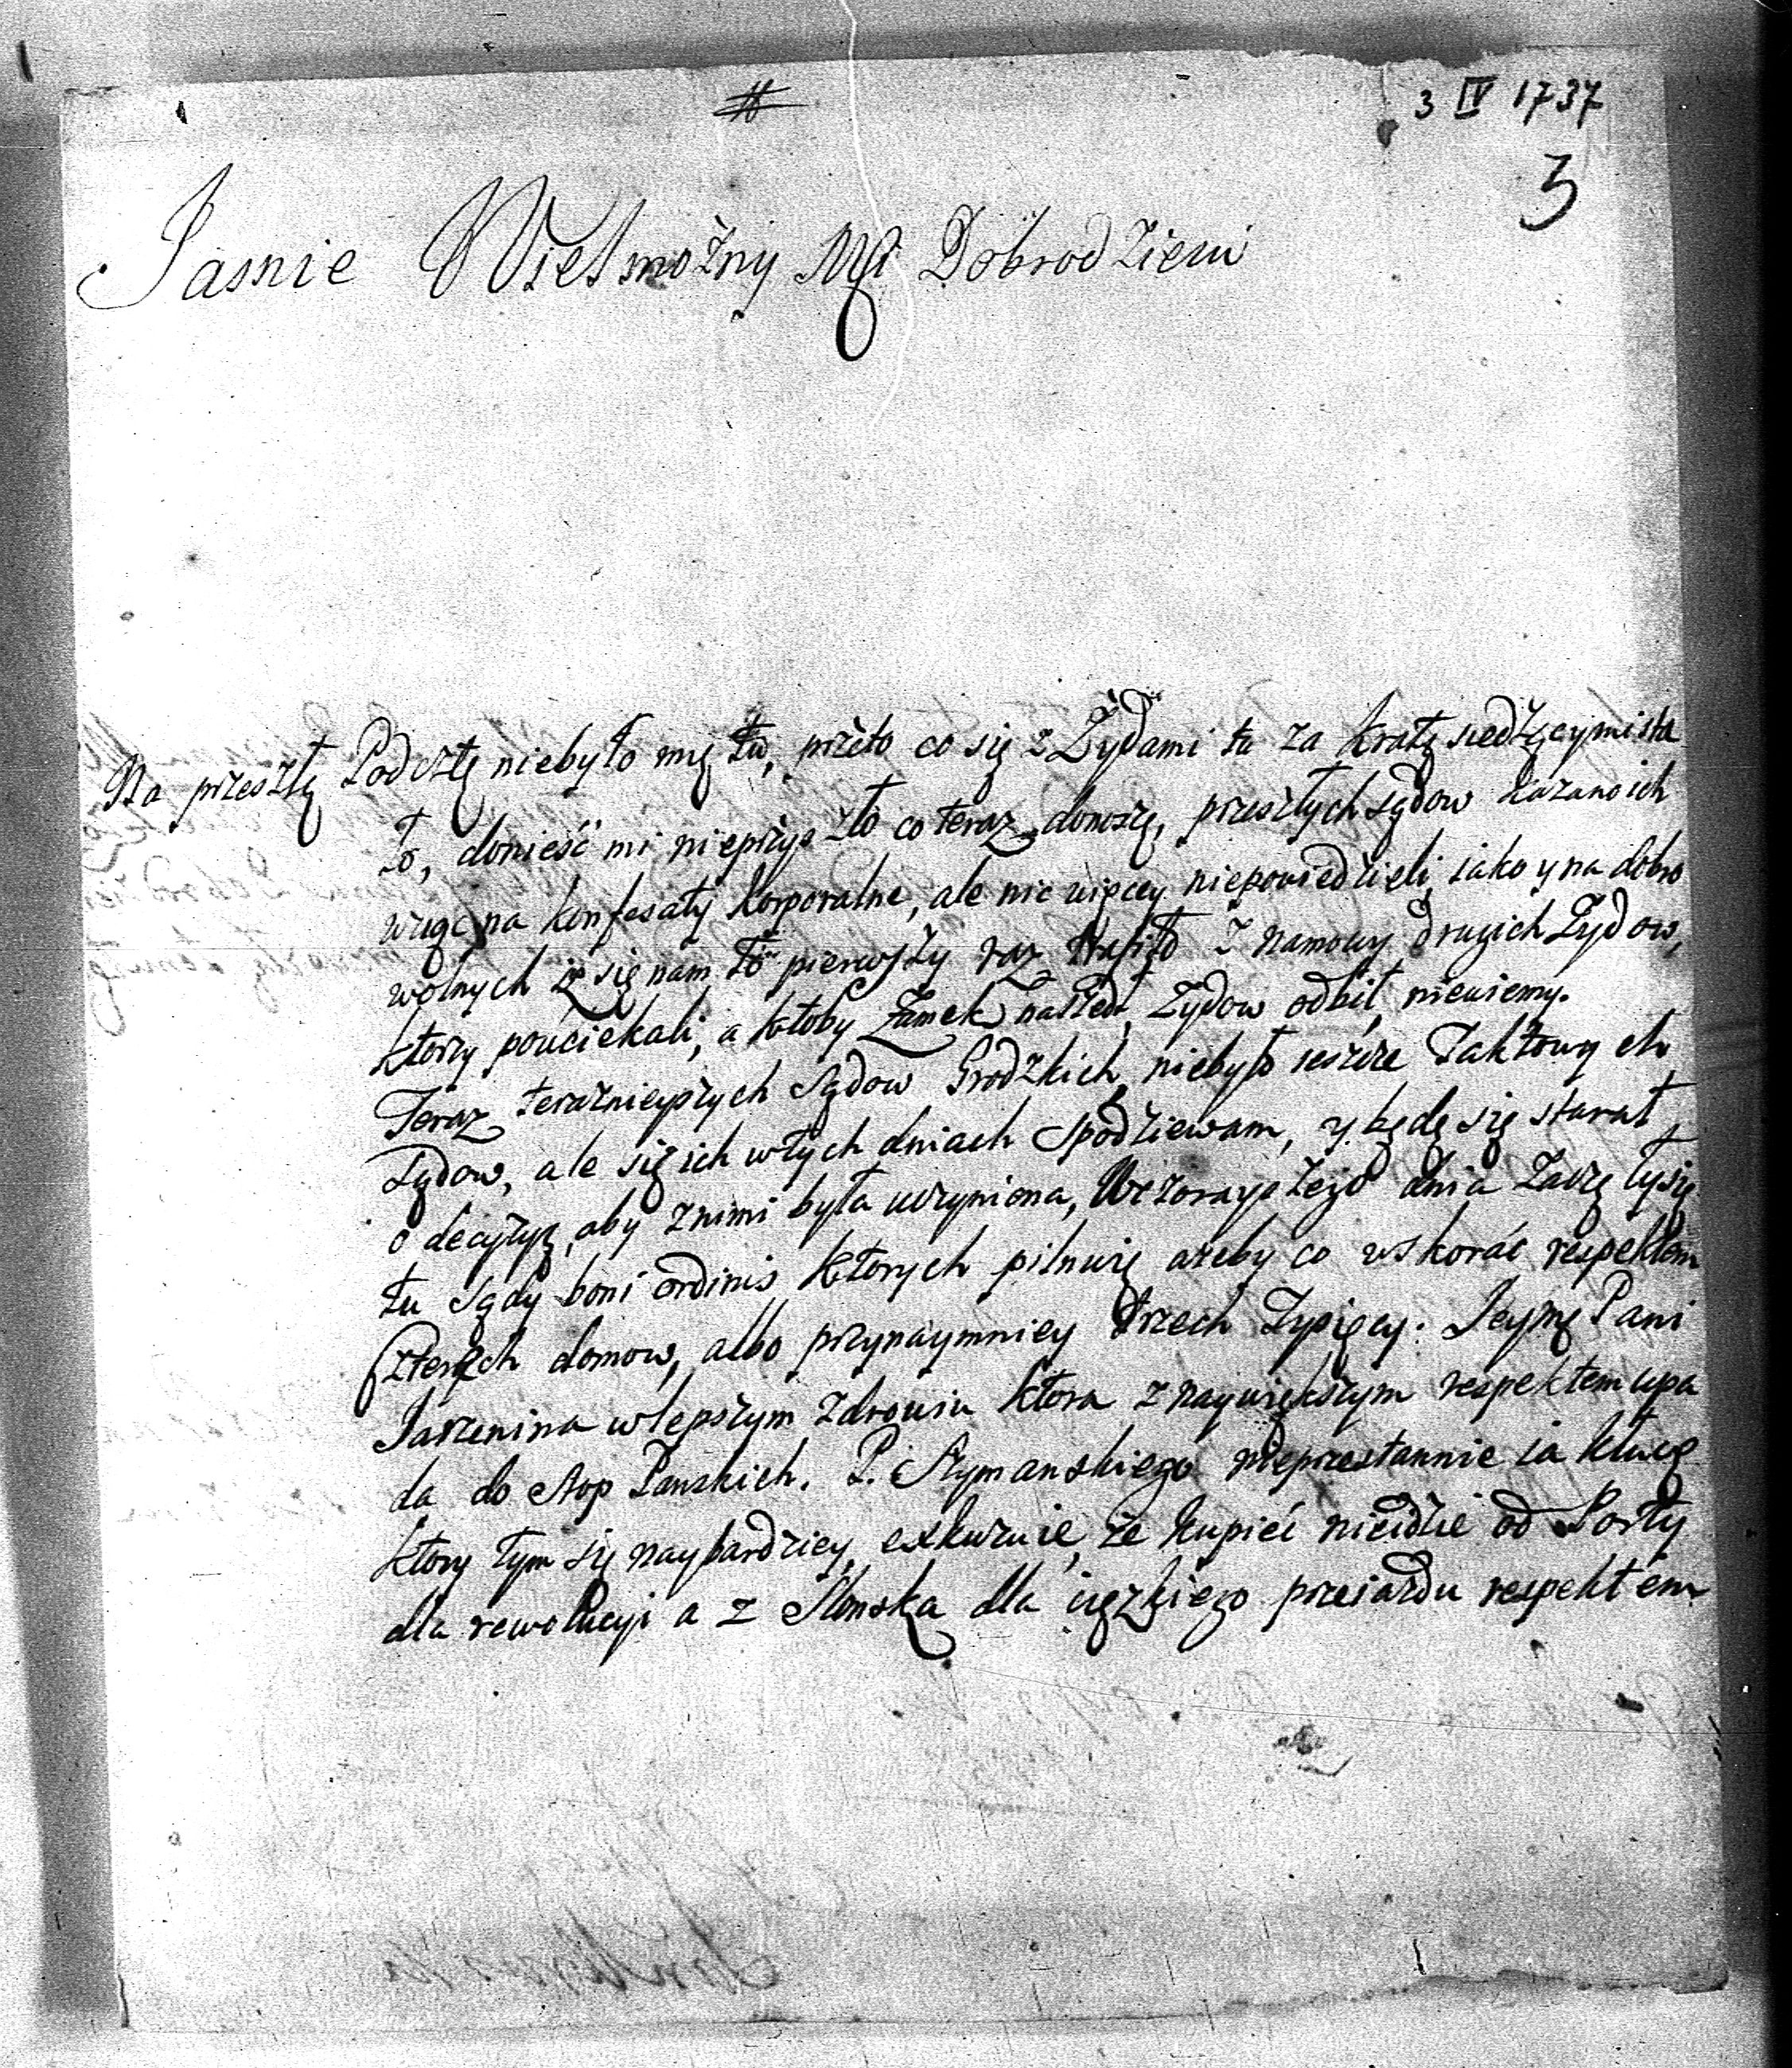 3 IV 1737
3
Jasnie Wielmożny Mći Dobrodzieiu
Na przeszłą Podcztę niebyło mię tu, przeto co się z Żydami tu za kratą siedzącymi sta
ło, donieść mi nieprzyszło co teraz donoszę, przeszłych sądow kazano ich
wziąc na konfesaty korporalne, ale nic więcey niepowiedzieli, iako y na dobro
wolnych iż się nam to pierwszy raz trafiło z namowy drugich Żydow,
ktorzy pouciekali, a ktoby Zamek naszedł, Żydow odbił, niewiemy.
Teraz teraznieyszych Sądow Grodzkich, niebyło ieszcze Taktowych
Sądow, ale się ich w tych dniach spodziewam, y będę się starał
o decyzyą, aby z nimi była uczyniona, Wczorayszego dnia zaczęły się
tu Sądy boni ordinis ktorych pilnuię ażeby co wskorać respektem
czterech domow, albo przynaymniey trzech Tysięcy. Jeymę Pani
w lepszym zdrowiu ktora z naywiększym respektem upa
da do stop Panskich. P. Szymanskiego nieprzestannie ia
ktory tym się naybardziey exkuzuie, że kupiec nieidzie od Porty
dla rewolucyi a z Slonska dla cięzkiego przeiazdu respektem